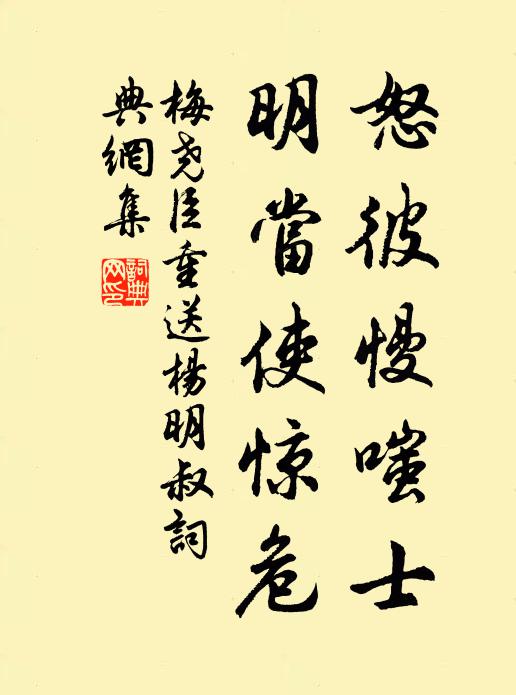 怒彼慢嗤士
明當使惊危
梅尧臣重送楊明叔詞
典網集
詞典網印